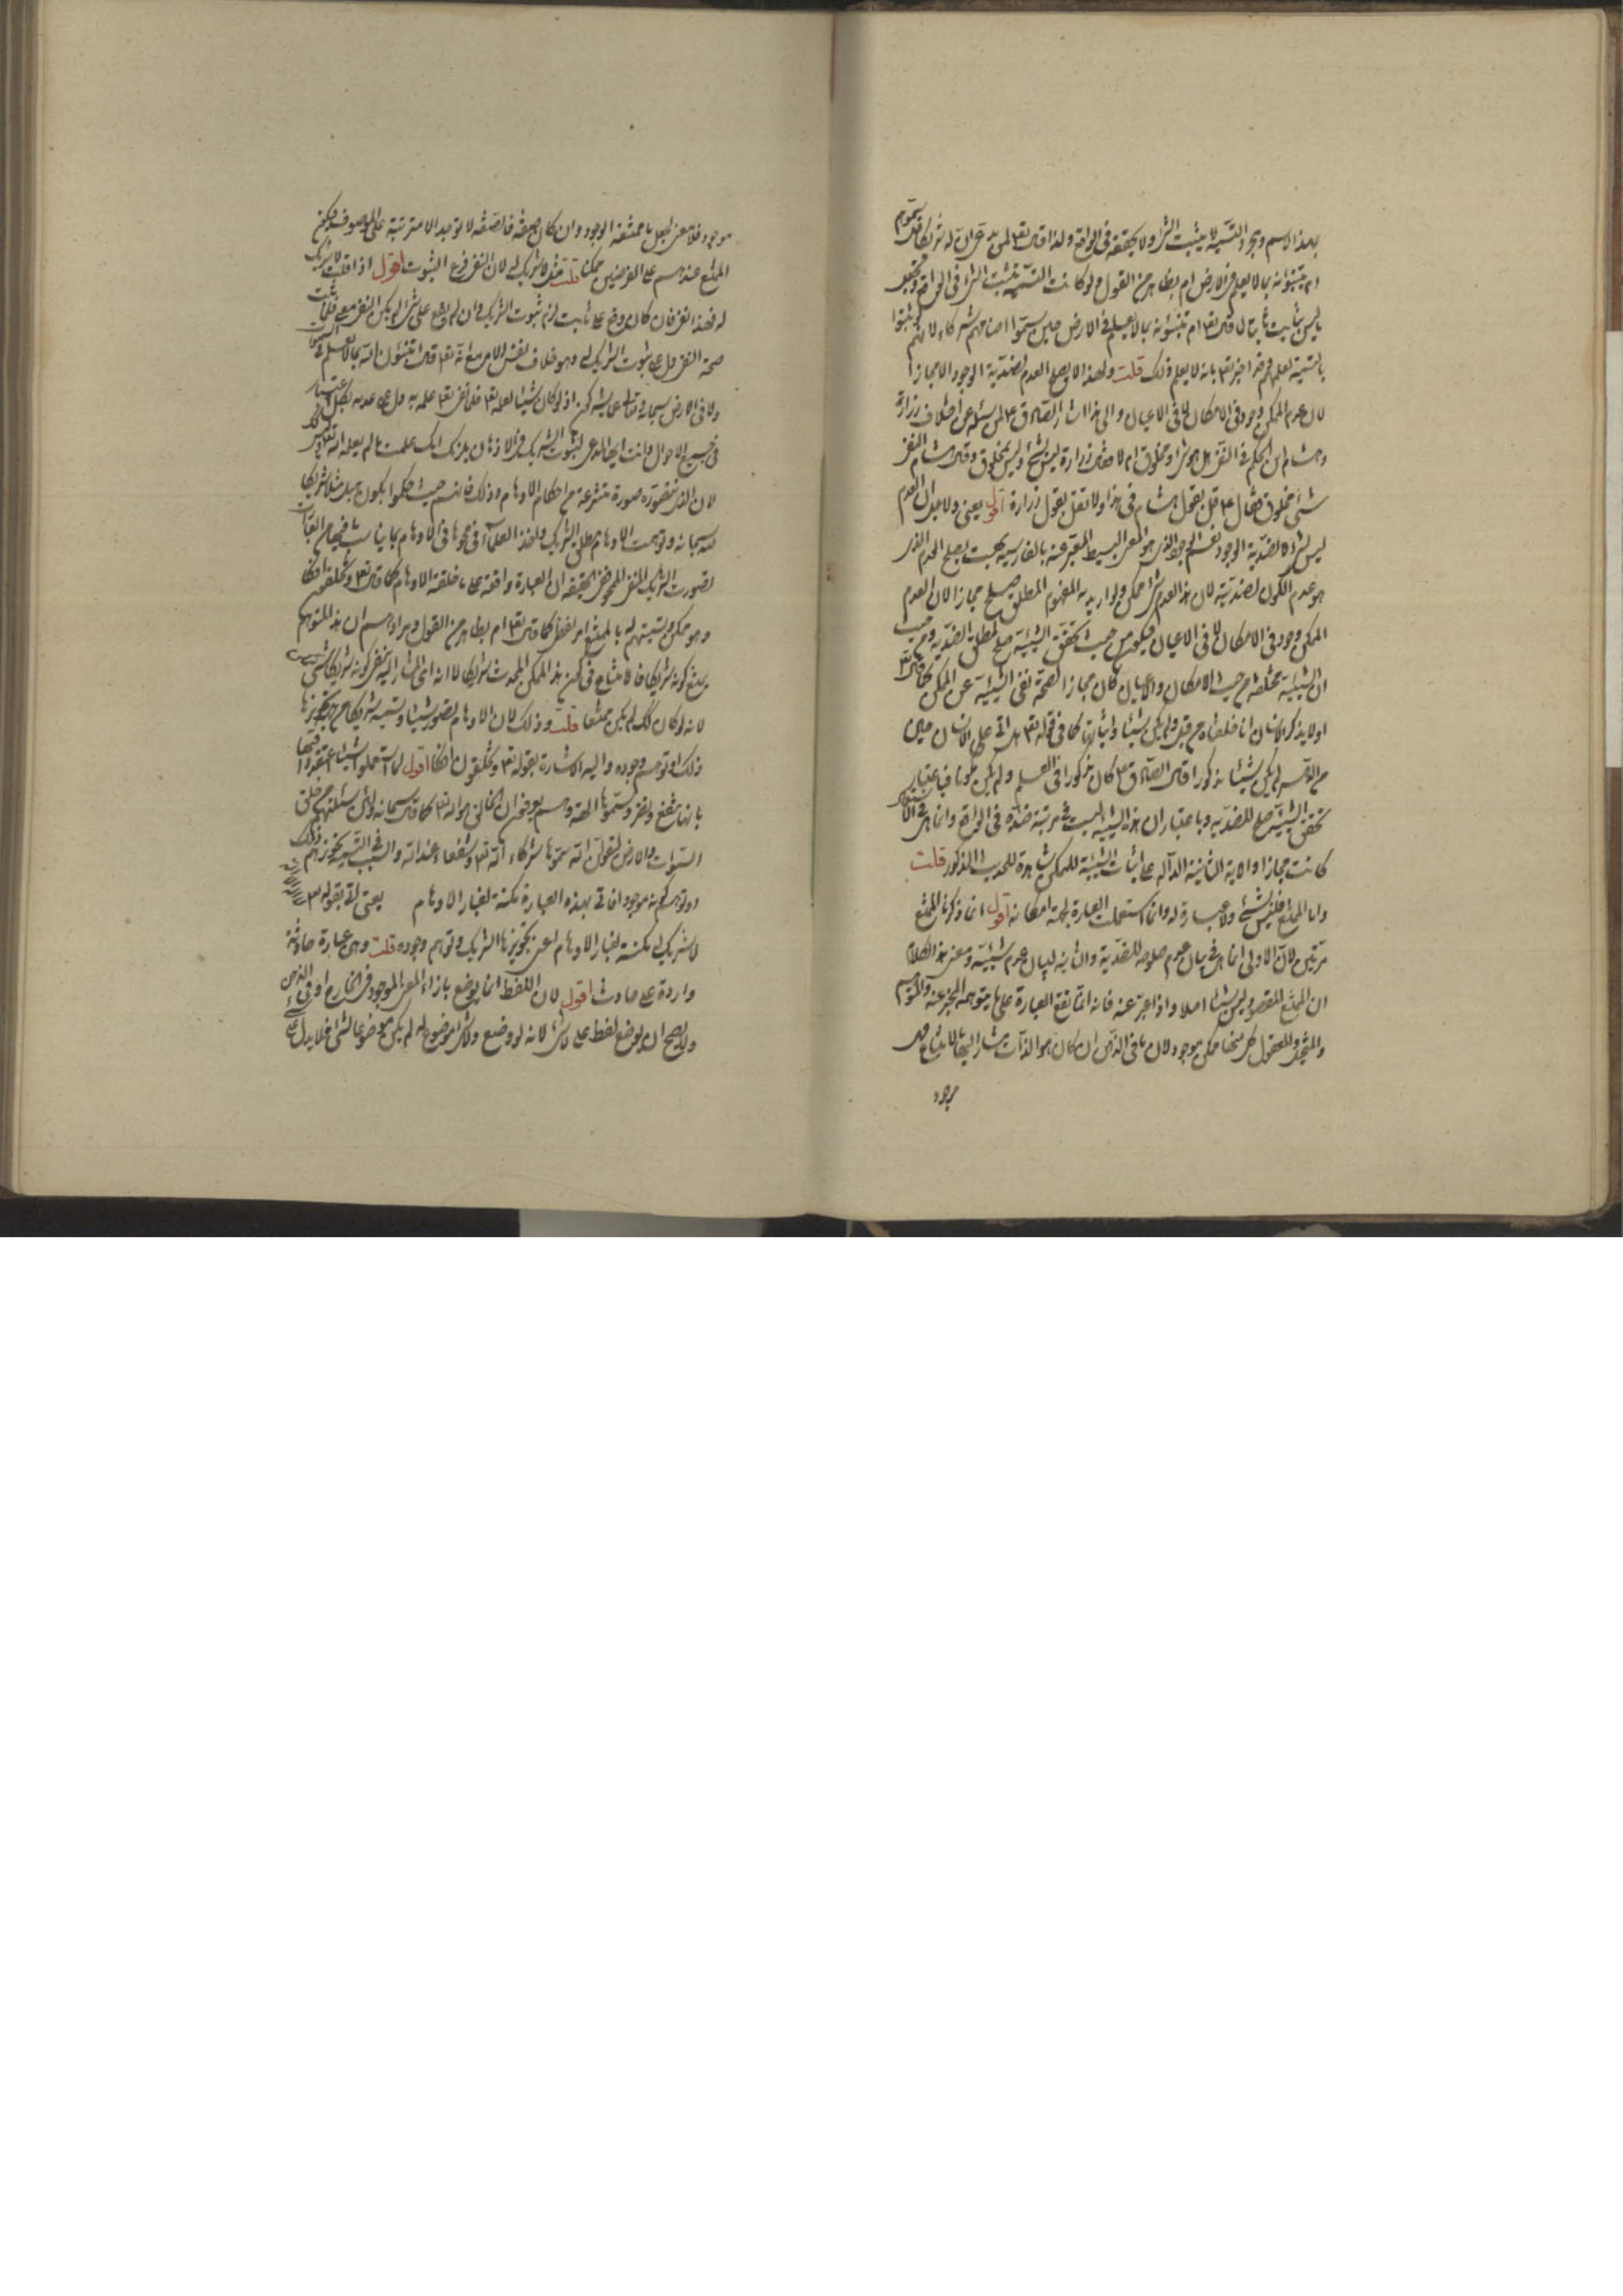 بهذا الاسم ومجرد التسمية لا يثبت الشئ ولا يحققه فى الواقع ولذا قال تعالى لمن زعم ان له شريكا قل سموهم
ام تنبئونه بما لا يعلم فى الارض ام بظاهر من القول ولو كانت التسمية تثبت الشئ فى الواقع وتجعل
ما ليس بثابت ثابتا لما قال تعالى ام تنبئونه بما لا يعلم فى الارض حين سموا اصنامهم شركاء لانهم
بالتسمية فقد اخبر تعالى بانه لا يعلم ذلك قلت ولهذا لا يصلح العدم لضدية الوجود الا مجازا
لان عدم الممكن وجود فى الامكان لا فى الاعيان والى هذا اشار الصادق ع لمن سئله عن اختلاف زرارة
وهشام ابن الحكم فى النفى هل هو شئ او مخلوق ام لا فقال زرارة ليس بشئ وليس بمخلوق وقال هشام النفى
شئ مخلوق فقال ع قل بقول هشام فى هذا ولا تقل بقول زرارة اقول يعنى ولاجل ان العدم
ليس بشئ لا لضدية الوجود هو المعنى البسيط المعبر عنه بالفارسية بهست يصلح العدم الذى
هو عدم الكون لضديته لان هذا العدم شئ ممكن ولو اريد به المفهوم المطلق صلح مجازا لان العدم
الممكن وجود فى الامكان لا فى الاعيان فيكون من حيث تحقق الشيئية صالح لمطلق الضدية ومن حيث
ان الشيئية مختلفة من حيث الامكان والاعيان كان مجازا لصحة نفى الشيئية عن الممكن كما قال تعالى
اولا يذكر الانسان انا خلقناه من قبل ولم يكن شيئا واثباتها كما فى قوله تعالى هل اتى على الانسان حين
من الدهر لم يكن شيئا مذكورا قال الصادق ع كان مذكورا فى العلم ولم يكن مكونا فباعتبار
تحقق الشيئية صلح للضدية وباعتبار ان هذه الشيئية ليست فى مرتبة ضده فى الواقع وانما هى فى الامكان
كانت مجازا والاية الثانية الدالة على اثبات الشيئية للممكن شاهدة للحديث المذكور قلت
واما الممتنع فليس بشئ ولا عبارة له وانما استعملت العبارة لجهة امكانه اقول انما ذكرنا الممتنع
مرتين لان الاولى انما هى فى بيان عدم صلوحه للضدية والثانية لبيان عدم شيئيته ومعنى هذا الكلام
ان الممتنع المقصود ليس شيئا اصلا واذا عبر عنه فانه انما تقع العبارة على ما يتوهمه المخبر عنه والموهوم
والمتخيل والمعقول كل منها ممكن موجود لان ما فى الذهن ان كان هو الذات مشار اليها بالامتناع فهى
موجود
موجود فلا معنى لجعل ما ممتنعة الوجود وان كان صفة فالصفة لا توجد الا مترتبة على الموصوف فيكون
الممتنع عندهم على الفرضين ممكنا قلت مثل لا شريك له لان النفى فرع الثبوت اقول اذا قلت لا شريك
له فهذا النفى فان كان وقع على ثابت لزم ثبوت الشريك وان لم يقع على شئ لم يكن النفى معنى
صحة النفى دل على ثبوت الشريك وهو خلاف نفس الامر مع انه تعالى قال اتنبئون الله بما لا يعلم فى السموات
ولا فى الارض سبحانه وتعالى عما يشركون اذ لو كان شيئا لعلمه تعالى فلما نفى تعالى علمه به دل على عدمه بكل اعتبار
فى جميع الاحوال وانت ايها المدعى لثبوت الشريك فى الاذهان يلزمك انك علمت ما لم يعلمه الله تعالى
لان الذى تتصوره صورة منتزعة من احكام الاوهام وذلك فانهم حيث حكموا بكون مثلا شريكا
لله سبحانه وتوهمت الاوهام مطلق الشريك ولهذا العلماء فى محو ما فى الاوهام
تصورت الشريك المنفى الحقيقة ان العبارة واقعة على ما خلقته الاوهام كما قال تعالى وتخلقون افكا
وهو ممكن وتسميتهم له بالممتنع امر لفظى كما قال تعالى ام بظاهر من القول ومرادهم ان هذا المتوهم
يمتنع كونه شريكا فالامتناع فى كون هذا الممكن المحدث شريكا لا انه اى المشار اليه بنفى كونه شريكا شئ
لانه لو كان كذلك لم يكن ممتنعا قلت وذلك لان الاوهام تصور شيئا وتسميه شريكا من جهة تجويزها
ذلك او توهم وجوده واليه الاشارة بقوله تعالى وتخلقون افكا اقول لما استعملوا اشياء اعتقدوا فيها
بانها تنفع وتضر وسموها الهة وهم يعرفون ان الخالق هو الله تعالى كما قال سبحانه ولئن سئلتهم من خلق
السموات والارض ليقولن الله سموها شركاء الله تعالى وشفعاء عند الله والسبب فى التسمية تجويزهم ذلك
او توهم كونه موجودا فاتى بهذه العبارة مكنسة لغبار الاوهام يعنى اتى بقوله
لا شريك له مكنسة لغبار الاوهام اعنى تجويزها الشريك وتوهم وجوده قلت وهى عبارة حادثة
واردة على حادث اقول لان اللفظ انما يوضع بازاء المعنى الموجود فى الخارج او فى الذهن
ولا يصح ان يوضع لفظ على لا شئ لانه لو وضع ولا شئ موضوع له لم يكن موضوعا لشئ فلا يدل على شئ